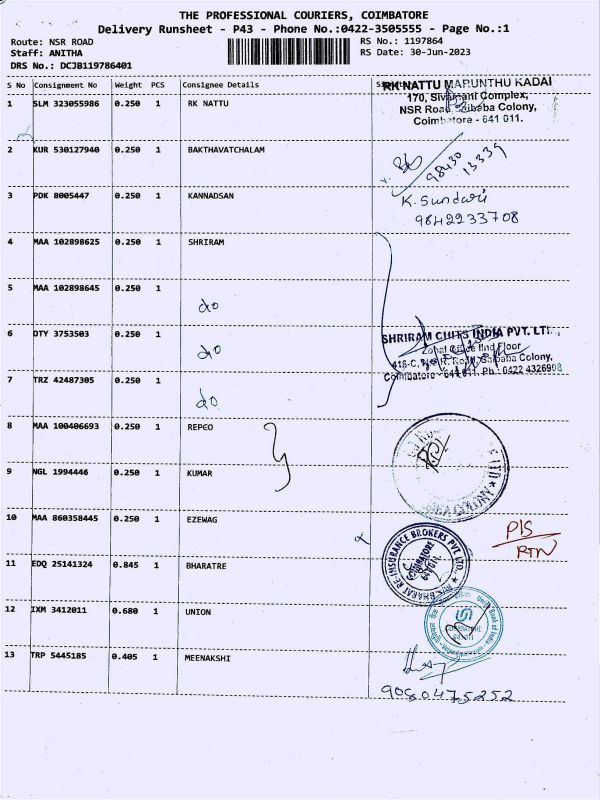 THE PROFESSIONAL COURIERS, COIMBATORE
Delivery Runsheet - P43 - Phone No.:0422-3505555 - Page No.:1
Route: NSR ROAD
Staff: ANITHA
DRS No.: DCJB119786401
RS No.: 1197864
RS Date: 30-Jun-2023
S No Consignment No Weight PCS Consignee Details
1 SLM 323055986 0.250 1 RK NATTU
RK NATTU MARUNTHU KADAI
170, Sivamani Complex,
NSR Road, Saibaba Colony,
Coimbatore - 641 011.
2 KUR 530127940 0.250 1 BAKTHAVATCHALAM
98430
13339
3 PDK 8005447 0.250 1 KANNADSAN
K. Sundari
9842233708
4 MAA 102898625 0.250 1 SHRIRAM
5 MAA 102898645 0.250 1 do
6 OTY 3753503 0.250 1 do
SHRIRAM CHITS INDIA PVT. LTD.
Zonal Office IInd Floor
416-C, N.S.R. Road, Saibaba Colony,
Coimbatore - 641 011, Ph : 0422 4326908
7 TRZ 42487305 0.250 1 do
8 MAA 100406693 0.250 1 REPCO
9 NGL 1994446 0.250 1 KUMAR
10 MAA 860358445 0.250 1 EZEWAG
PIS
RTN
11 EDQ 25141324 0.845 1 BHARATRE
BHARAT RE-INSURANCE BROKERS PVT LTD.,
COIMBATORE
641 011
12 IXM 3412011 0.680 1 UNION
Union Bank of India
COIMBATORE
641 011
13 TRP 5445185 0.405 1 MEENAKSHI
9080475252